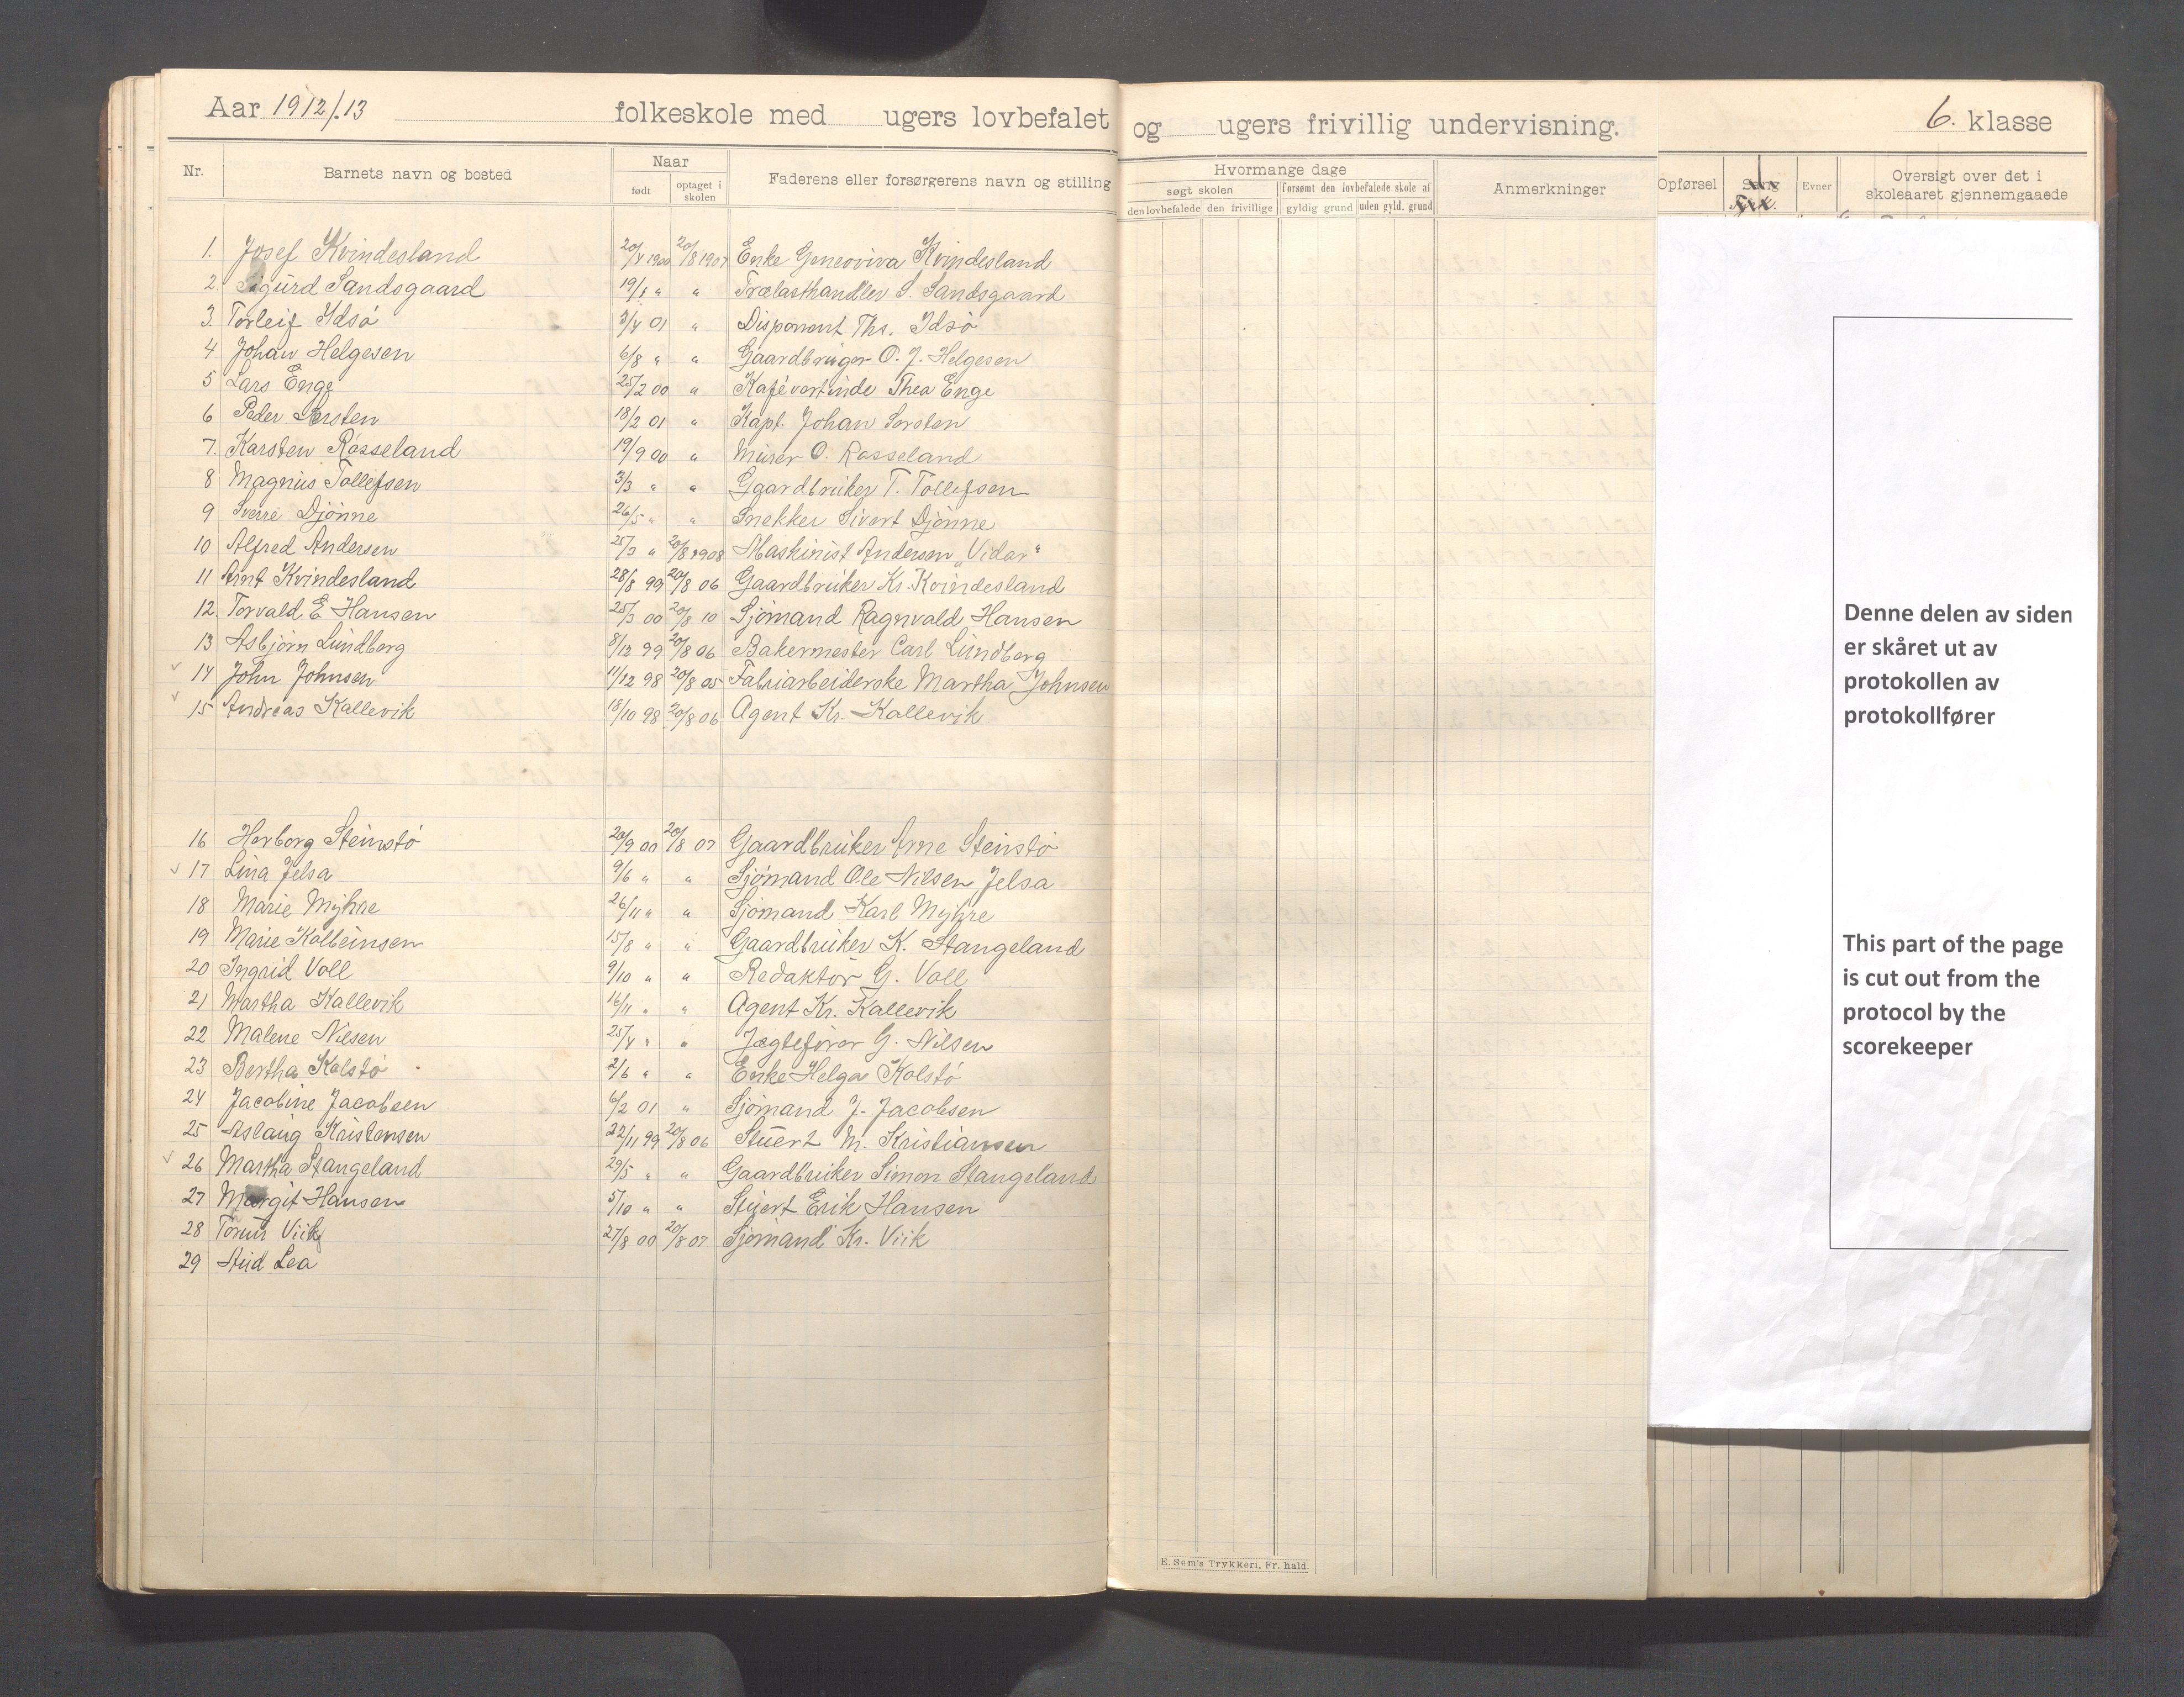 Aar 1912/.13 folkeskole med ugers lovbefalet og ugers frivillig undervisning. 6. klasse
Nr. Barnets navn og bosted Naar født optaget i skolen Faderens eller forsørgerens navn og stilling
Hvormange dage søgt skolen den lovbefalede den frivillige forsømt den lovbefalede skole af gyldig grund uden gyld. grund Anmerkninger
Opførsel Evner Oversigt over det i skoleaaret gjennemgaaede
1. Josef Kvindesland 20/4 1900 20/8 1907 Enke Genoviva Kvindesland
2. Sigurd Sandsgaard 19/1 " " Trælasthandler S. Sandsgaard
3. Torleif Idsö 3/4 01 " Disponent Ths. Idsö
4 Johan Helgesen 6/8 " " Gaardbruger O. J. Helgesen
5 Lars Enge 25/2 00 " Kafévertinde Thea Enge
6 Peder Sersten 18/2 01 " Kapt. Johan Sersten
7. Karsten Rosseland 19/9 00 " Murer O. Rosseland
8 Magnus Tollefsen 3/3 " " Gaardbruker T. Tollefsen
9 Sverre Djönne 26/5 " " Snekker Sivert Djönne
10 Alfred Andersen 25/3 " 20/8 1908 Maskinist Andersen „Vidar"
11 Arnt Kvindesland 28/8 99 20/8 06 Gaardbruker Kr. Kvindesland
12. Torvald E Hansen 25/3 00 20/8 10 Sjömand Ragnvald Hansen
13 Asbjörn Lundberg 8/12 99 20/8 06 Bakermester Carl Lundberg
14 John Johnsen 11/12 98 20/8 05 Fabriarbeiderske Martha Johnsen
15 Andreas Kallevik 18/10 98 20/8 06 Agent Kr. Kallevik
16 Herborg Steinstö 20/9 00 20/8 07 Gaardbruker Arne Steinstö
17 Lina Jelsa 9/6 " " Sjömand Ole Nilsen Jelsa
18 Marie Myhre 26/11 " " Sjömand Karl Myhre
19 Marie Kolbeinsen 15/8 " " Gaardbruker K. Stangeland
20 Ingrid Voll 9/10 " " Redaktör G. Voll
21 Martha Kallevik 16/11 " " Agent Kr. Kallevik
22 Malene Nilsen 25/4 " " Jægteförer G. Nilsen
23 Bertha Kolstö 2/6 " " Enke Helga Kolstö
24 Jacobine Jacobsen 6/2 01 " Sjömand J. Jacobsen
25 Aslaug Kristensen 22/11 99 20/8 06 Stuert M. Kristiansen
26 Martha Stangeland 29/5 " " Gaardbruker Simon Stangeland
27 Margit Hansen 5/10 " " Stuert Erik Hansen
28 Torun Viik 27/8 00 20/8 07 Sjömand Kr. Viik
29 Lea
Denne delen av siden
er skåret ut av
protokollen av
protokollfører
This part of the page
is cut out from the
protocol by the
scorekeeper
E. Sem's Trykkeri, Fr. hald.